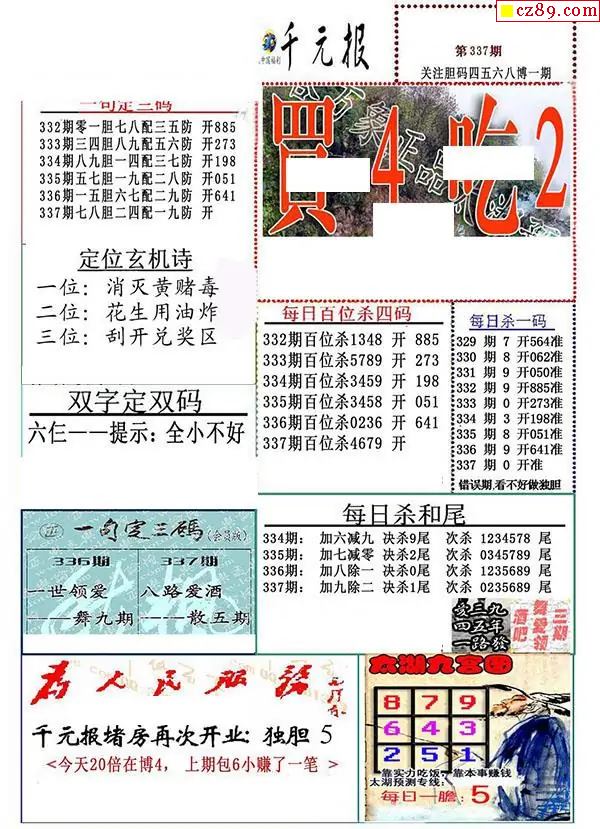 cz89.com
中国福利
千元报
第337期
关注胆码四五六八博一期
一句定三码
332期零一胆七八配三五防 开885
333期三四胆八九配五六防 开273
334期八九胆一四配三七防 开198
335期五七胆一九配二八防 开051
336期一五胆六七配二九防 开641
337期七八胆二四配一九防 开
買4吃2
定位玄机诗
一位：消灭黄赌毒
二位：花生用油炸
三位：刮开兑奖区
每日百位杀四码
332期百位杀1348 开 885
333期百位杀5789 开 273
334期百位杀3459 开 198
335期百位杀3458 开 051
336期百位杀0236 开 641
337期百位杀4679 开
每日杀一码
329 期 7 开564准
330 期 8 开062准
331 期 9 开050准
332 期 9 开885准
333 期 0 开273准
334 期 3 开198准
335 期 8 开051准
336 期 9 开641准
337 期 0 开准
错误期,看不好做独胆
双字定双码
六仨——提示：全小不好
每日杀和尾
334期： 加六减九 决杀9尾 次杀 1234578 尾
335期： 加七减零 决杀2尾 次杀 0345789 尾
336期： 加八除一 决杀0尾 次杀 1235689 尾
337期： 加九除二 决杀1尾 次杀 0235689 尾
一句定三碼(会员版)
336期 337期
一世领爱 八路爱酒
——舞九期 ——散五期
爱三九
四五年
一路發
三湖
舞爱领
酒吧
为人民服务
千元报堵房再次开业: 独胆 5
<今天20倍在博4， 上期包6小赚了一笔 >
太湖九宫图
8 7 9
6 4 3
2 5 1
靠实力吃饭，靠本事赚钱
太湖预测专线:
每日一膽: 5